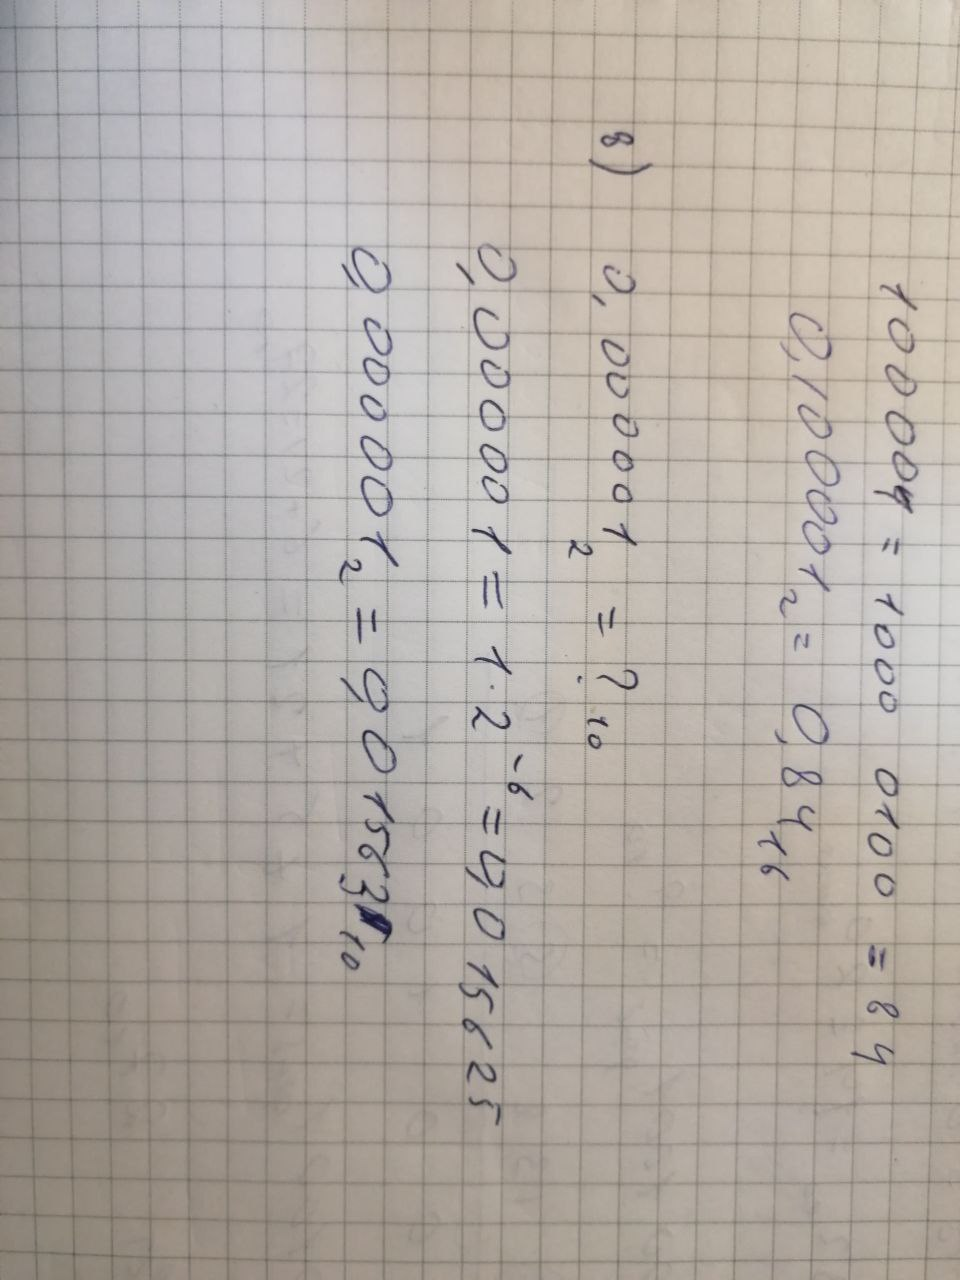 100001 = 1000 0100 = 84
0,100001₂ = 0,84₁₆
8) 0,000001₂ = ?₁₀
0,000001 = 1·2⁻⁶ = 0,015625
0,000001₂ = 0,01563₁₀